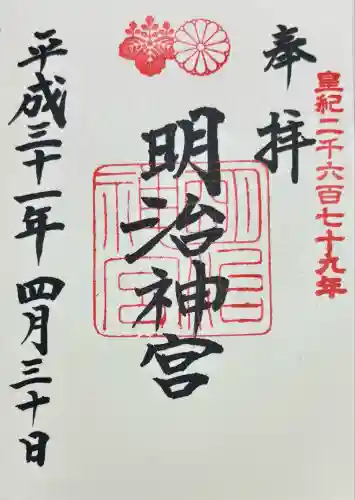 皇紀二千六百七十九年
奉拝
明治神宮
平成三十一年四月三十日